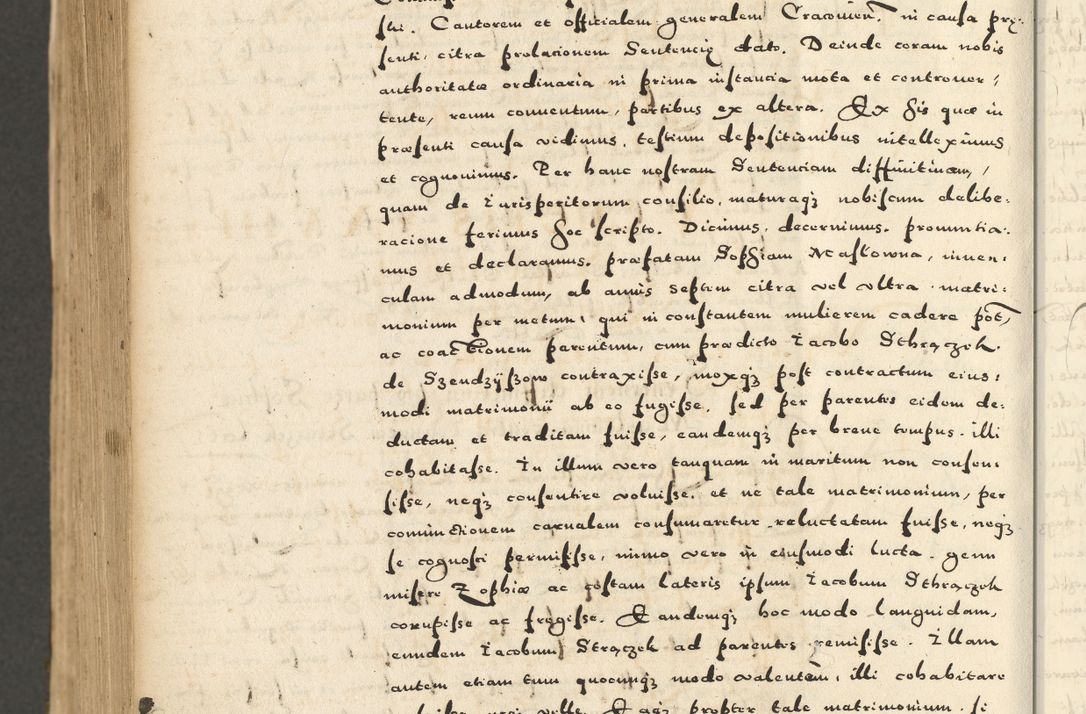 ski. Cantorem et officialem generalem Cracovien̄. in causa præ-
senti, citra prolacionem Sententię dato. Deinde coram nobis
authoritate ordinaria in prima instancia mota et controver,
tente, reum conventum, partibus ex altera. Ex His quæ in
præsenti causa vidimus, testium depositionibus intelleximus
et cognovimus. Per hanc nostram Sentenciam diffinitivam,
quam de Iurisperitorum consilio, maturaq3 nobiscum delibe-
racione ferimus Hoc scripto. Dicimus, decernimus, pronuntia-
mus et declaramus, præfatam Sophiam Maslowna, iuven-
culam admodum, ab annis septem citra vel ultra matri-
monium per metum, qui in constantem mulierem cadere pōt,
ac coactionem parentum, cum prædicto Iacobo Sthrączek
de Szendzyszow contraxisse, moxq3 post contractum eius-
modi matrimonij ab eo fugisse, sed per parentes eidem de-
ductam et traditam fuisse, eandemq3 per breve tempus illi
cohabitasse. In illum vero tanquam in maritum non consen-
sisse, neq3 consentire voluisse, et ne tale matrimonium, per
comixtionem carnalem consumaretur reluctatam fuisse, neq3
se cognosci permisisse, immo vero in eiusmodi lucta genu
misere Zophiæ ac costam lateris ipsum Iacobum Sthrączek
corupisse ac fregisse. Eandemq3 hoc modo languidam,
eundem Iacobum Strączek ad parentes remisisse. Illam
autem etiam tum quocunq3 modo valentem, illi cohabitare
tale matrimonium